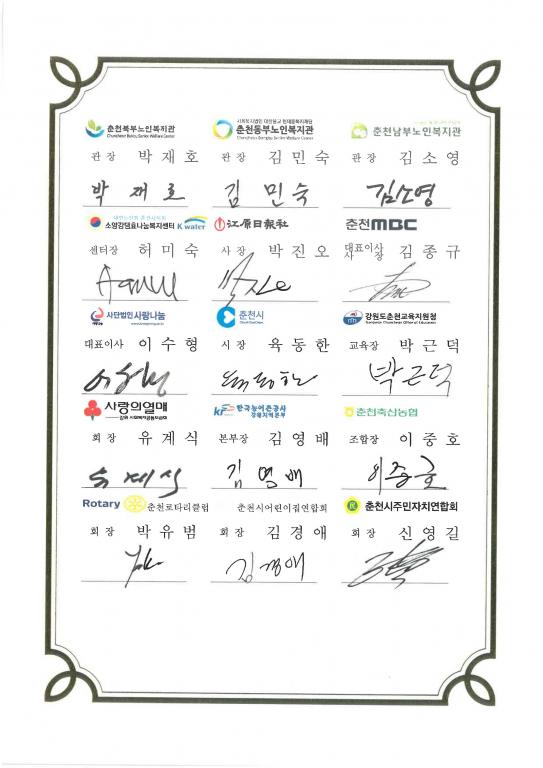 춘천북부노인복지관
Chuncheon Bukbu Senior Welfare Center
사회복지법인 대한불교 천태종복지재단
춘천동부노인복지관
Chuncheon Dongbu Senior Welfare Center
춘천남부노인복지관
관 장 박 재 호
관 장 김 민 숙
관 장 김 소 영
박 재 호
김 민 숙
김소영
소양강댐효나눔복지센터 K water
江原日報社
춘천MBC
센터장 허 미 숙
사 장 박 진 오
대표이사 사장 김 종 규
박진오
사단법인 사람나눔
춘천시
강원도춘천교육지원청
대표이사 이 수 형
시 장 육 동 한
교육장 박 근 덕
이수형
육동한
박근덕
사랑의열매
강원 사회복지공동모금회
한국농어촌공사
강원지역본부
춘천축산농협
회 장 유 계 식
본부장 김 영 배
조합장 이 중 호
유 계 식
김 영 배
이중호
Rotary 춘천로타리클럽
춘천시어린이집연합회
춘천시주민자치연합회
회 장 박 유 범
회 장 김 경 애
회 장 신 영 길
김경애